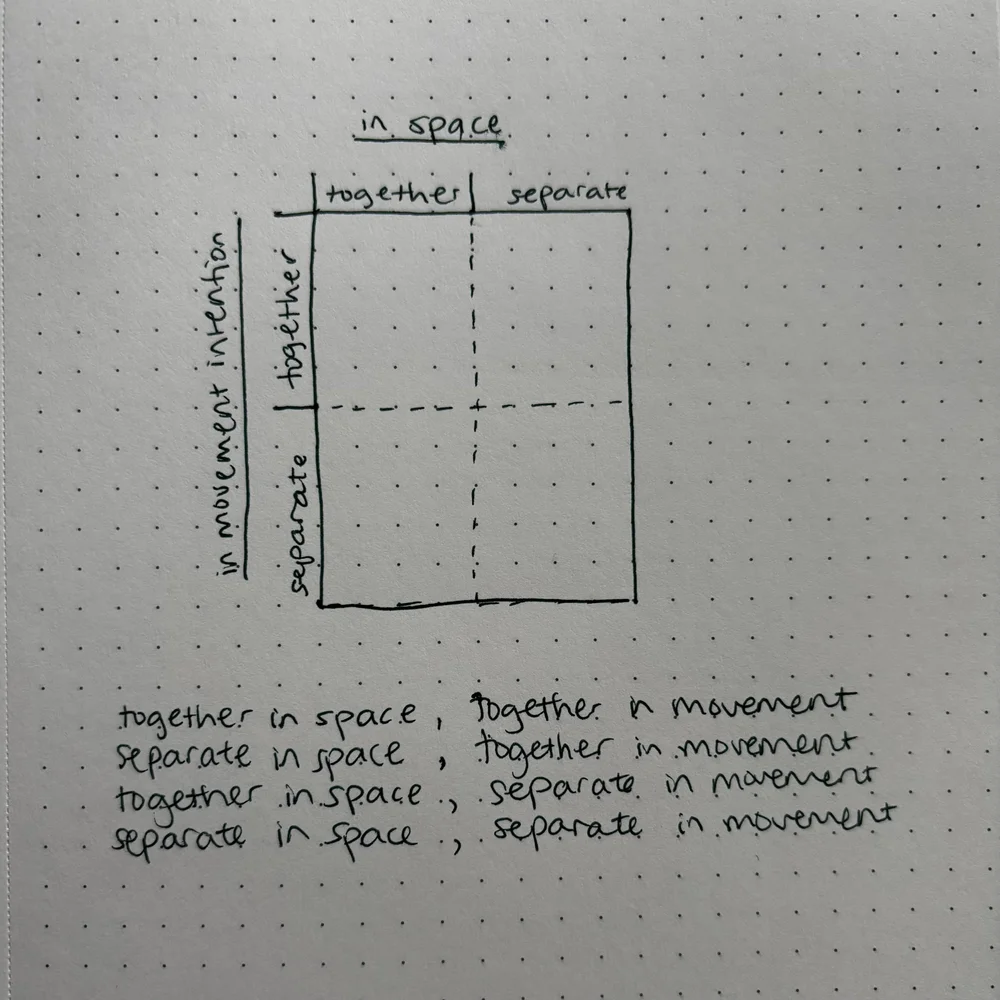 in space
together separate
in movement intention
together
separate
together in space, together in movement
separate in space, together in movement
together in space, separate in movement
separate in space, separate in movement